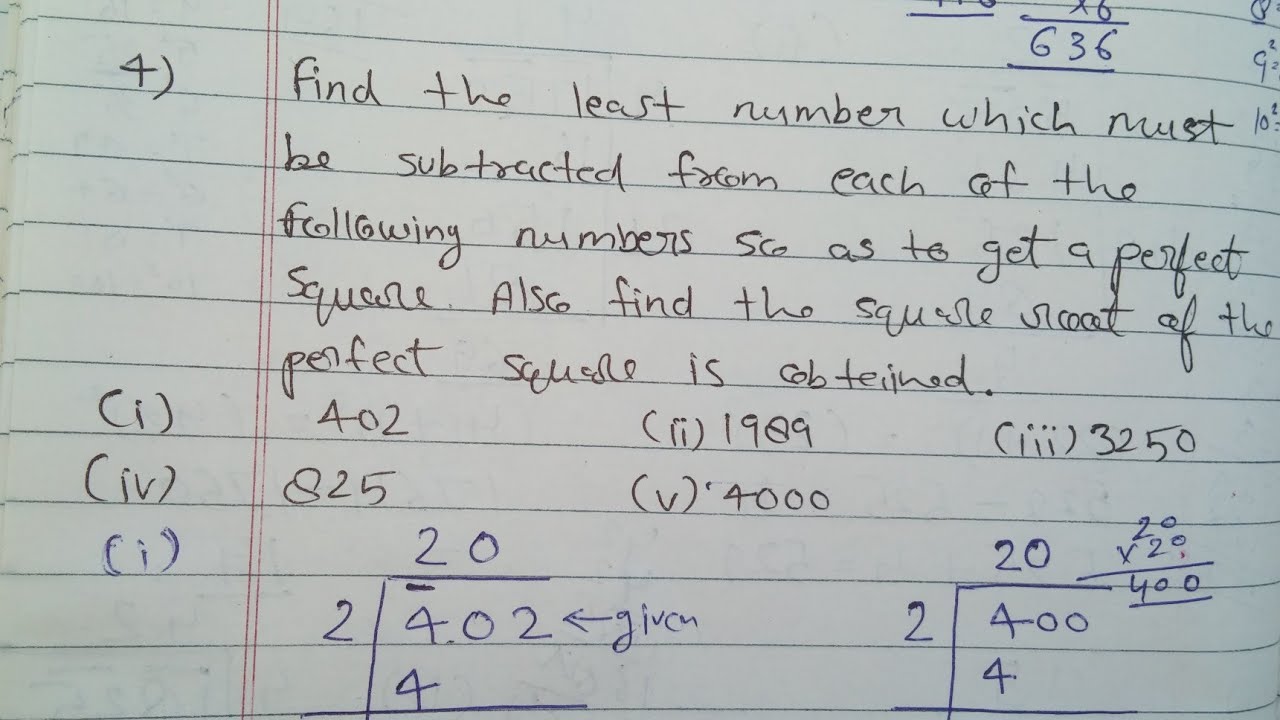 ×6
636
8
9²=
10²=
4) Find the least number which must
be subtracted from each of the
following numbers so as to get a perfect
square. Also find the square root of the
perfect square is obteined.
(i) 402 (ii) 1989 (iii) 3250
(iv) 825 (v) 4000
(i) 20 20 20
×20
400
2 4.02 ←given 2 400
4 4